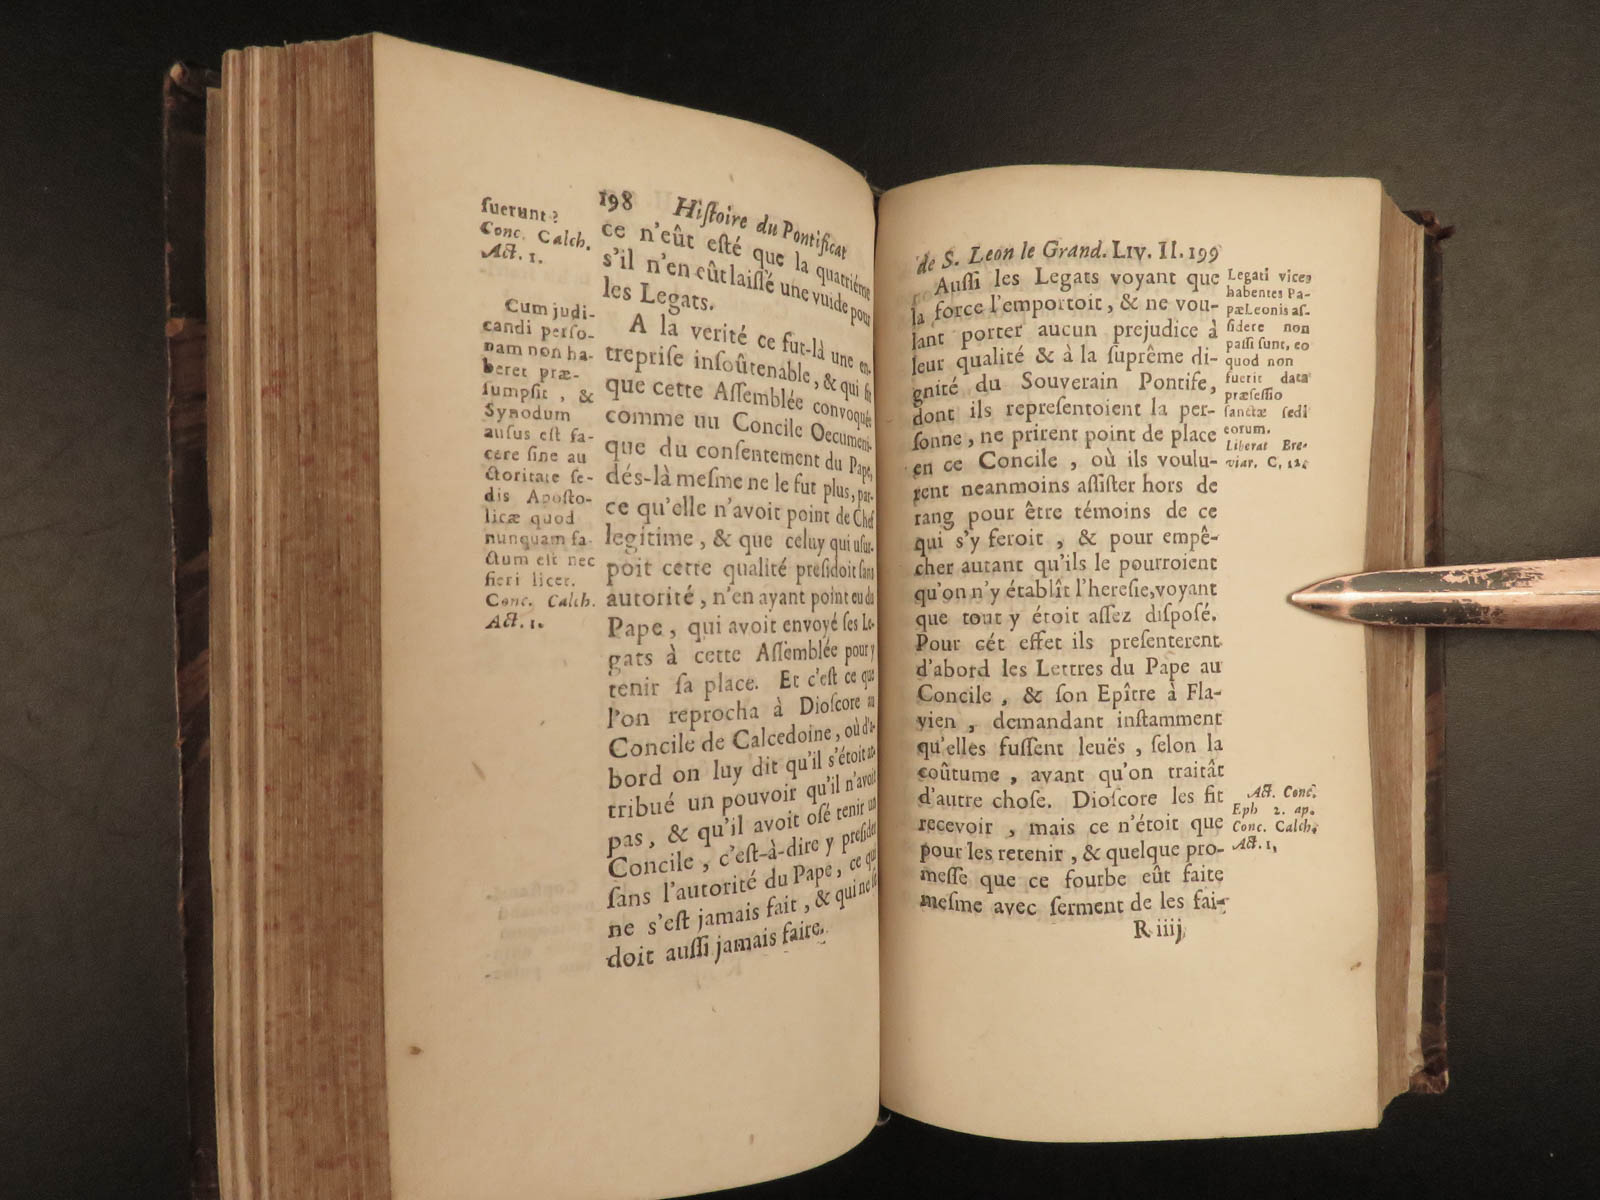 198 Histoire du Pontificat
ce n'eût esté que la quatriéme
s'il n'en eût laissé une vuide pour
les Legats.
A la verité ce fut-là une en-
treprise insoûtenable, & qui fit
que cette Assemblée convoquée
comme un Concile Oecumeni-
que du consentement du Pape,
dés-là mesme ne le fut plus, par-
ce qu'elle n'avoit point de Chef
legitime, & que celuy qui usur-
poit cette qualité presidoit sans
autorité, n'en ayant point eu du
Pape, qui avoit envoyé ses Le-
gats à cette Assemblée pour y
tenir sa place. Et c'est ce que
l'on reprocha à Dioscore au
Concile de Calcedoine, où d'a-
bord on luy dit qu'il s'étoit at-
tribué un pouvoir qu'il n'avoit
pas, & qu'il avoit osé tenir un
Concile, c'est-à-dire y presider
sans l'autorité du Pape, ce qui
ne s'est jamais fait, & qui ne se
doit aussi jamais faire.
fuerunt?
Conc. Calch.
Act. 1.
Cum judi-
candi perso-
nam non ha-
beret præ-
sumpsit, &
Synodum
ausus est fa-
cere sine au
ctoritate se-
dis Aposto-
licæ quod
nunquam fa-
ctum est nec
fieri licet.
Conc. Calch.
Act. 1.
de S. Leon le Grand. LIV. II. 199
Aussi les Legats voyant que
la force l'emportoit, & ne vou-
lant porter aucun prejudice à
leur qualité & à la suprême di-
gnité du Souverain Pontife,
dont ils representoient la per-
sonne, ne prirent point de place
en ce Concile, où ils voulu-
rent neanmoins assister hors de
rang pour être témoins de ce
qui s'y feroit, & pour empê-
cher autant qu'ils le pourroient
qu'on n'y établît l'heresie, voyant
que tout y étoit assez disposé.
Pour cét effet ils presenterent
d'abord les Lettres du Pape au
Concile, & son Epître à Fla-
vien, demandant instamment
qu'elles fussent leuës, selon la
coûtume, avant qu'on traitât
d'autre chose. Dioscore les fit
recevoir, mais ce n'étoit que
pour les retenir, & quelque pro-
messe que ce fourbe eût faite
mesme avec serment de les fai-
R iiij
Legati vices
habentes Pa-
pæ Leonis as-
sidere non
passi sunt, eo
quod non
fuerit data
præsessio
sanctæ sedi
eorum.
Liberat Bre-
viar. C. 12.
Act. Conc.
Eph 2. ap.
Conc. Calch.
Act. 1.